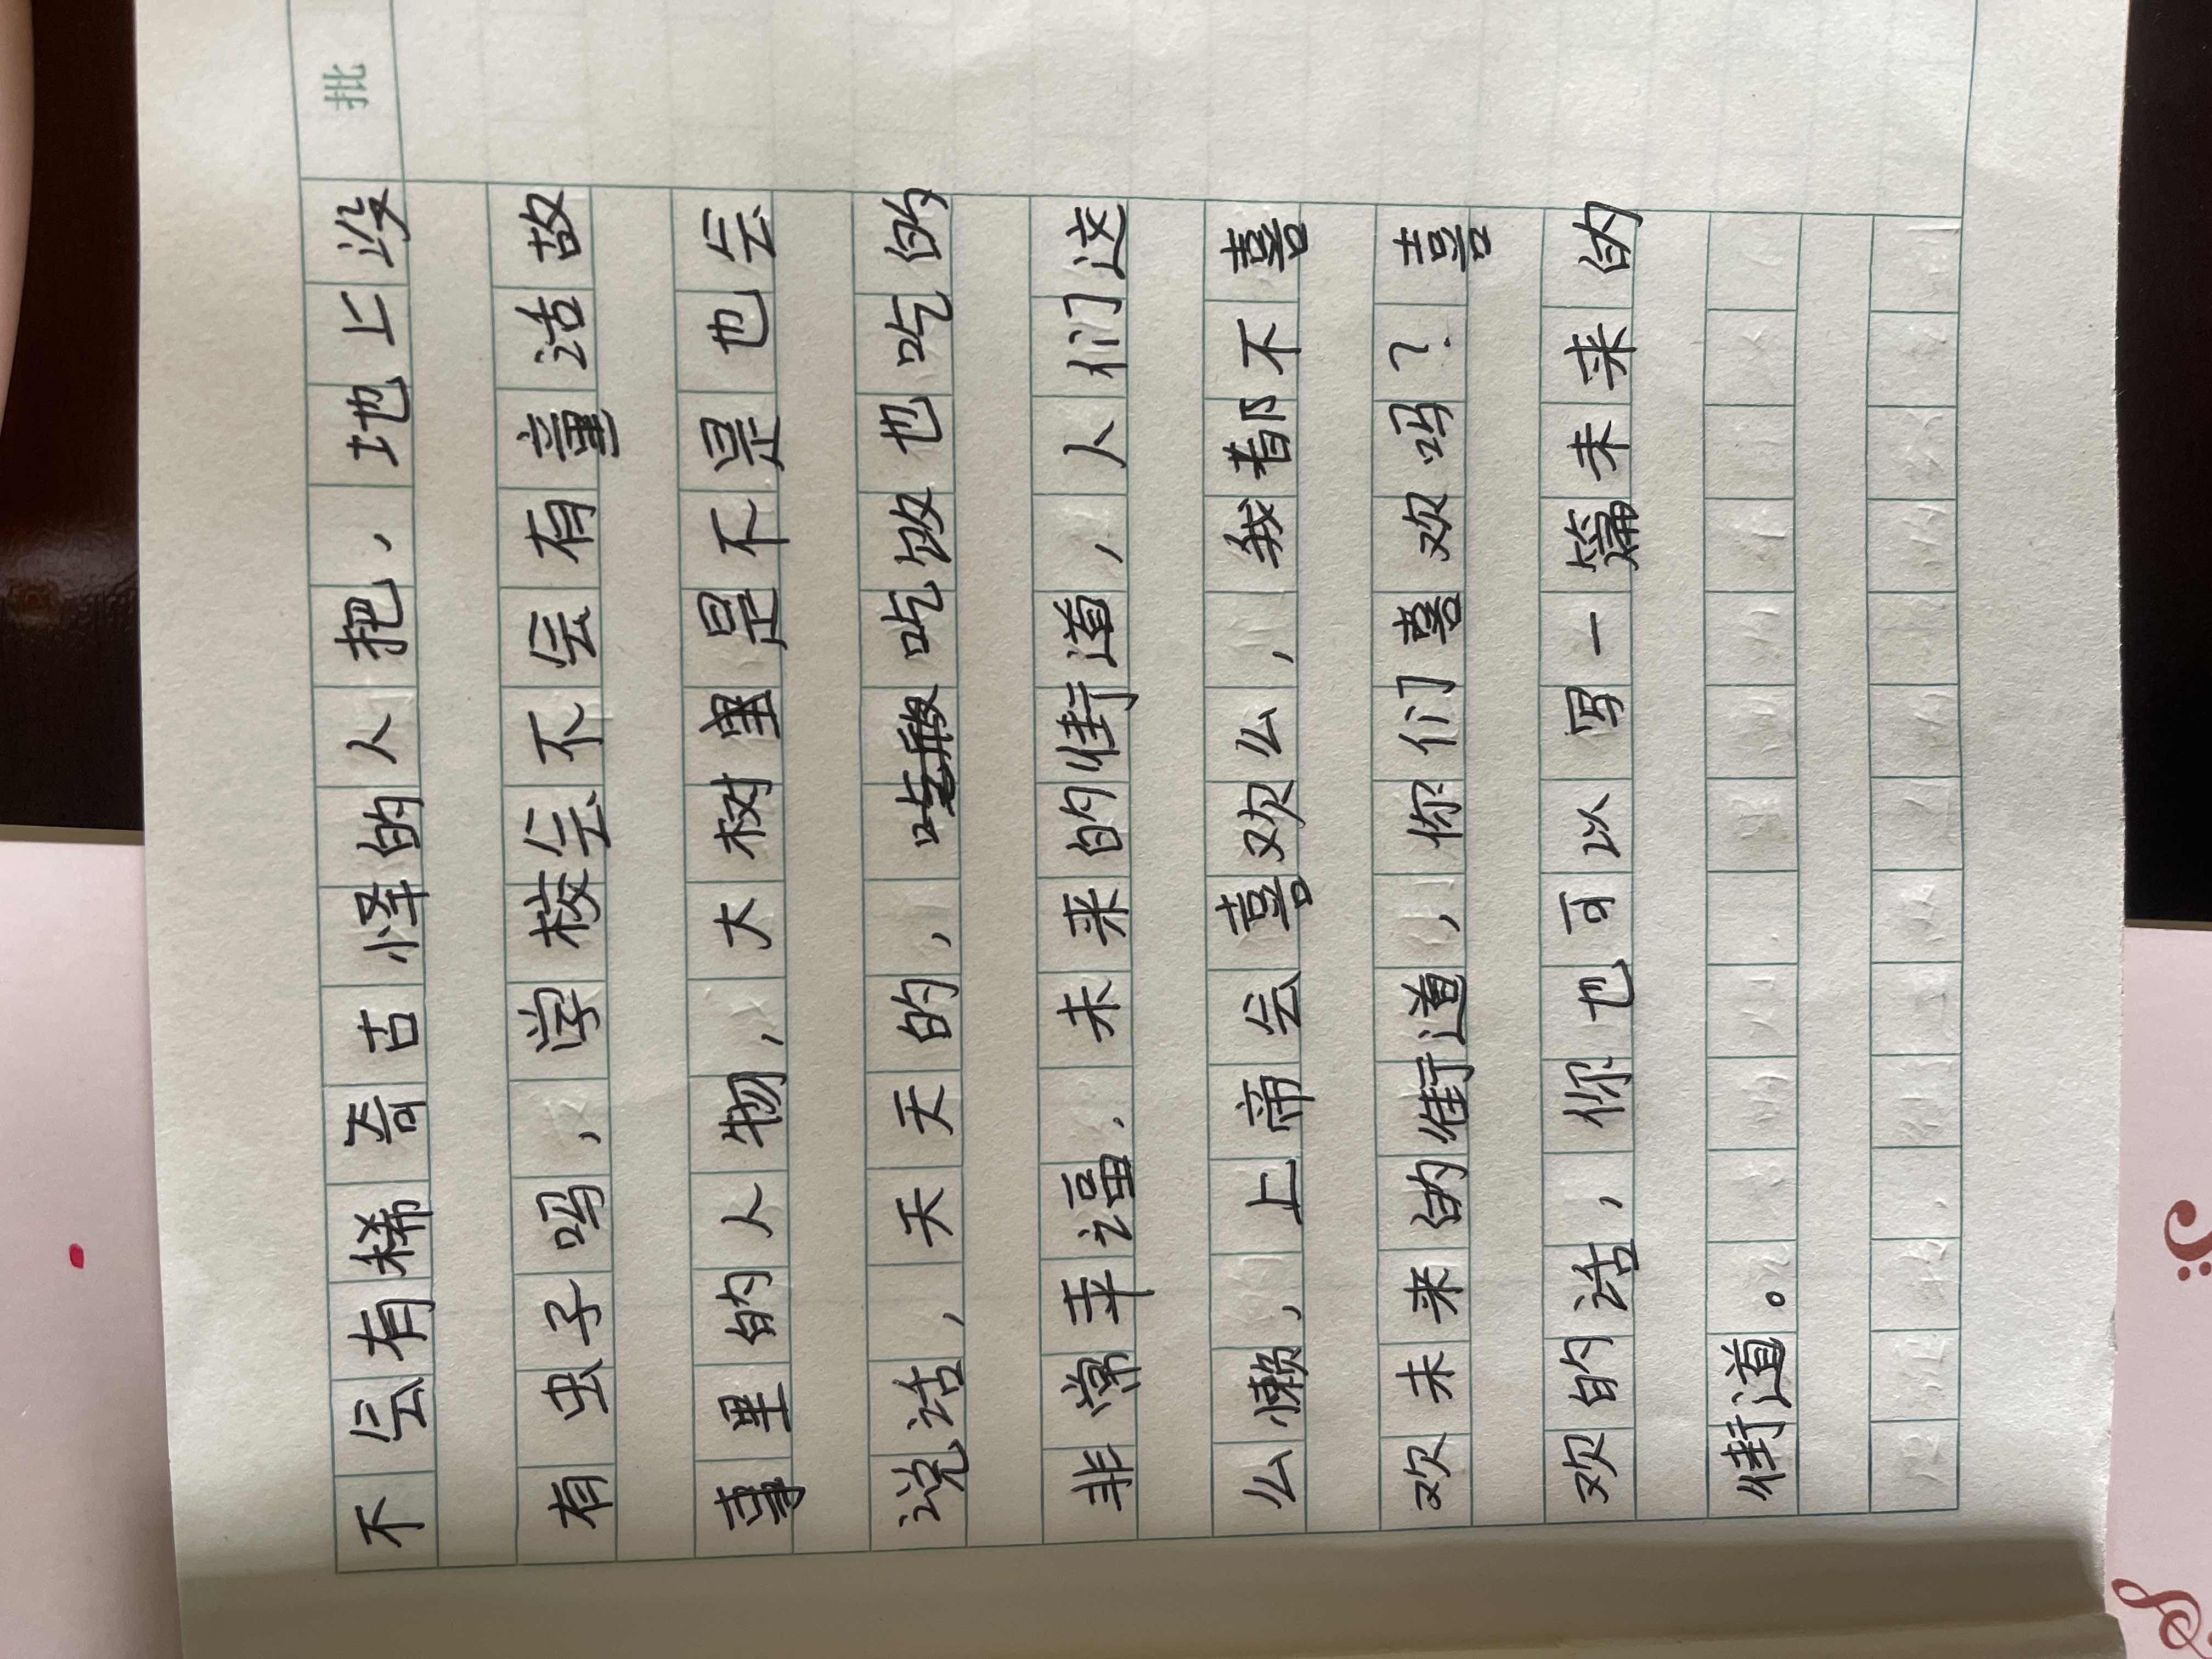 不会有稀奇古怪的人把，地上没
有虫子吗，学校会不会有童话故
事里的人物，大树里是不是也会
说话，天天的，吃饭也吃的
非常幸福．未来的街道，人们这
么懒，上帝会喜欢么，我都不喜
欢未来的街道，你们喜欢吗？喜
欢的话，你也可以写一篇未来的
街道。
批